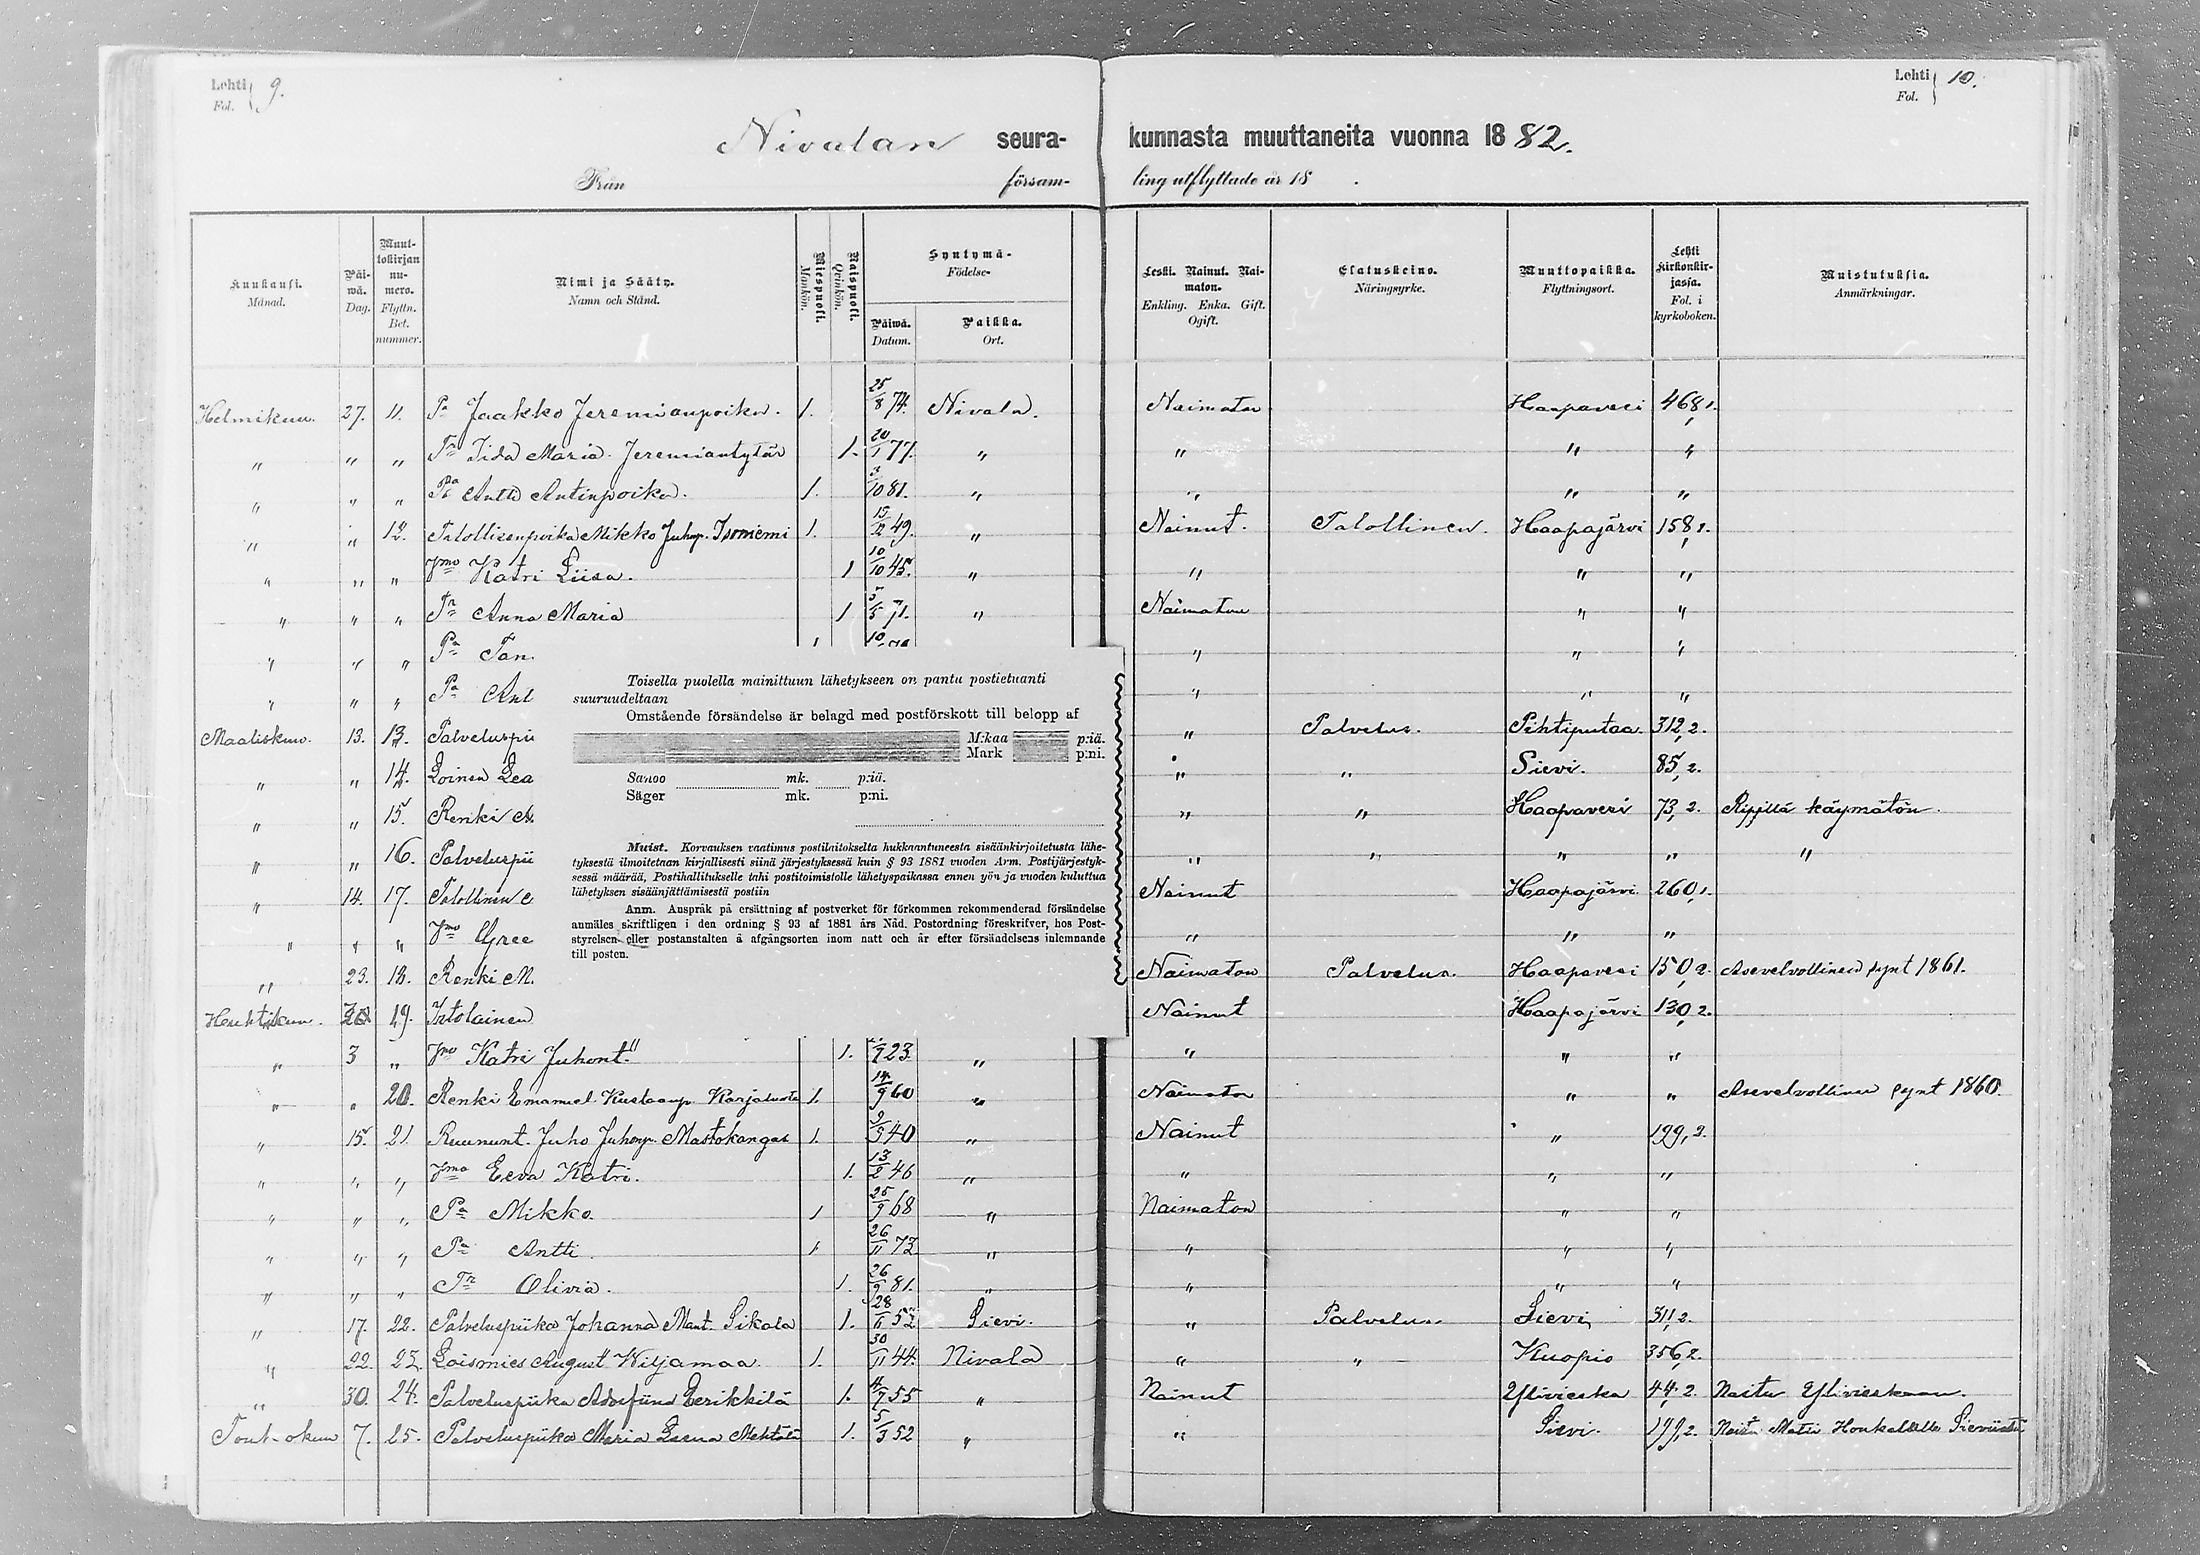 Lehti Fol. 9.
Lehti Fol. 10.
Nivalan seura- kunnasta muuttaneita vuonna 1882.
Från försam- ling utflyttade år 18 .
Kuukausi. Månad.
Päi-wä. Dag.
Muut-tokirjan nu-mero. Flyttn. Bet. nummer.
Nimi ja Sääty. Namn och Stånd.
Miespuoli. Mankön.
Naispuoli. Qvinkön.
Syntymä- Födelse-
Päiwä. Datum.
Paikka. Ort.
Leski. Nainut. Nai-maton. Enkling. Enka. Gift. Ogift.
Elatuskeino. Näringsyrke.
Muuttopaikka. Flyttningsort.
Lehti kirkonkir-jassa. Fol. i kyrkoboken.
Muistutuksia. Anmärkningar.
Helmikuu. 27. 11. Pa Jaakko Jeremianpoika. 1. 25/8 74. Nivala. Naimaton Haapavesi 468,1.
" " " Tr Iida Maria Jeremiantytär 1. 20/1 77. " " " "
" " " Pa Antti Antinpoika. 1. 3/10 81. " " " "
" " 12. Talollisenpoika Mikko Juhop. Isoniemi 1. 15/2 49. " Nainut. Talollinen. Haapajärvi 158,1.
" " " Vmo Katri Liisa. 1 10/10 45. " " " "
" " " Tr Anna Maria 1 5/5 71. " Naimaton " "
" " " Pa " " "
" " " Pa " " "
Maaliskuu. 13. 13. Palveluspii " Palvelus. Pihtiputaa. 312,2.
" " 14. Loinen " " Sievi. 85,2.
" " 15. Renki " " Haapavesi 73,2. Ripillä käymätön.
" " 16. Palveluspii " " " " "
" 14. 17. Talollinen Nainut Haapajärvi 260,1.
" " " Vmo " " "
" 23. 18. Renki M. Naimaton Palvelus. Haapavesi 150,2. Asevelvollinen synt 1861.
Huhtikuu. 19. Itolainen Nainut Haapajärvi 130,2.
" 3 " Vmo Katri Juhont. 1. 23. " " " "
" " 20. Renki Emanuel Kustaanp. Karjaluoto 1. 14/9 60 " Naimaton " " Asevelvollinen synt 1860.
" 15. 21. Ruununt. Juho Juhonp. Mastokangas 1. 9/5 40 " Nainut " 199,2.
" " " Vmo Eeva Katri. 1. 13/2 46 " " " "
" " " Pa Mikko. 1 25/9 68 " Naimaton " "
" " " Pa Antti. 1 26/11 73 " " " "
" " " Tr Olivia. 1. 26/9 81. " " " "
" 17. 22. Palveluspiika Johanna Mant. Sikala 1. 28/11 52 Sievi. " Palvelus. Sievi 311,2.
" 22. 23. Loismies August Wiljamaa. 1. 30/11 44. Nivala " " Kuopio 356,2.
" 30. 24. Palveluspiika Adolfiina Eerikkilä 1. 4/9 55 " Nainut Ylivieska 44,2. Naitu Ylivieskaan.
Toukokuu 7. 25. Palveluspiika Maria Leena 1. 5/3 52 " " Sievi. Naitu Matti Honkalalle Sieviistä
Toisella puolella mainittuun lähetykseen on pantu postietuanti
suuruudeltaan
Omstående försändelse är belagd med postförskott till belopp af
M:kaa p:iä.
Mark p:ni.
Sanoo mk. p:iä.
Säger mk. p:ni.
Muist. Korvauksen vaatimus postilaitokselta hukkaantuneesta sisäänkirjoitetusta lähe-
tyksestä ilmoitetaan kirjallisesti siinä järjestyksessä kuin § 93 1881 vuoden Arm. Postijärjestyk-
sessä määrää, Postihallitukselle tahi postitoimistolle lähetyspaikassa ennen yön ja vuoden kuluttua
lähetyksen sisäänjättämisestä postiin
Anm. Anspråk på ersättning af postverket för förkommen rekommenderad försändelse
anmäles skriftligen i den ordning § 93 af 1881 års Nåd. Postordning föreskrifver, hos Post-
styrelsen eller postanstalten å afgångsorten inom natt och år efter försändelsens inlemnande
till posten.